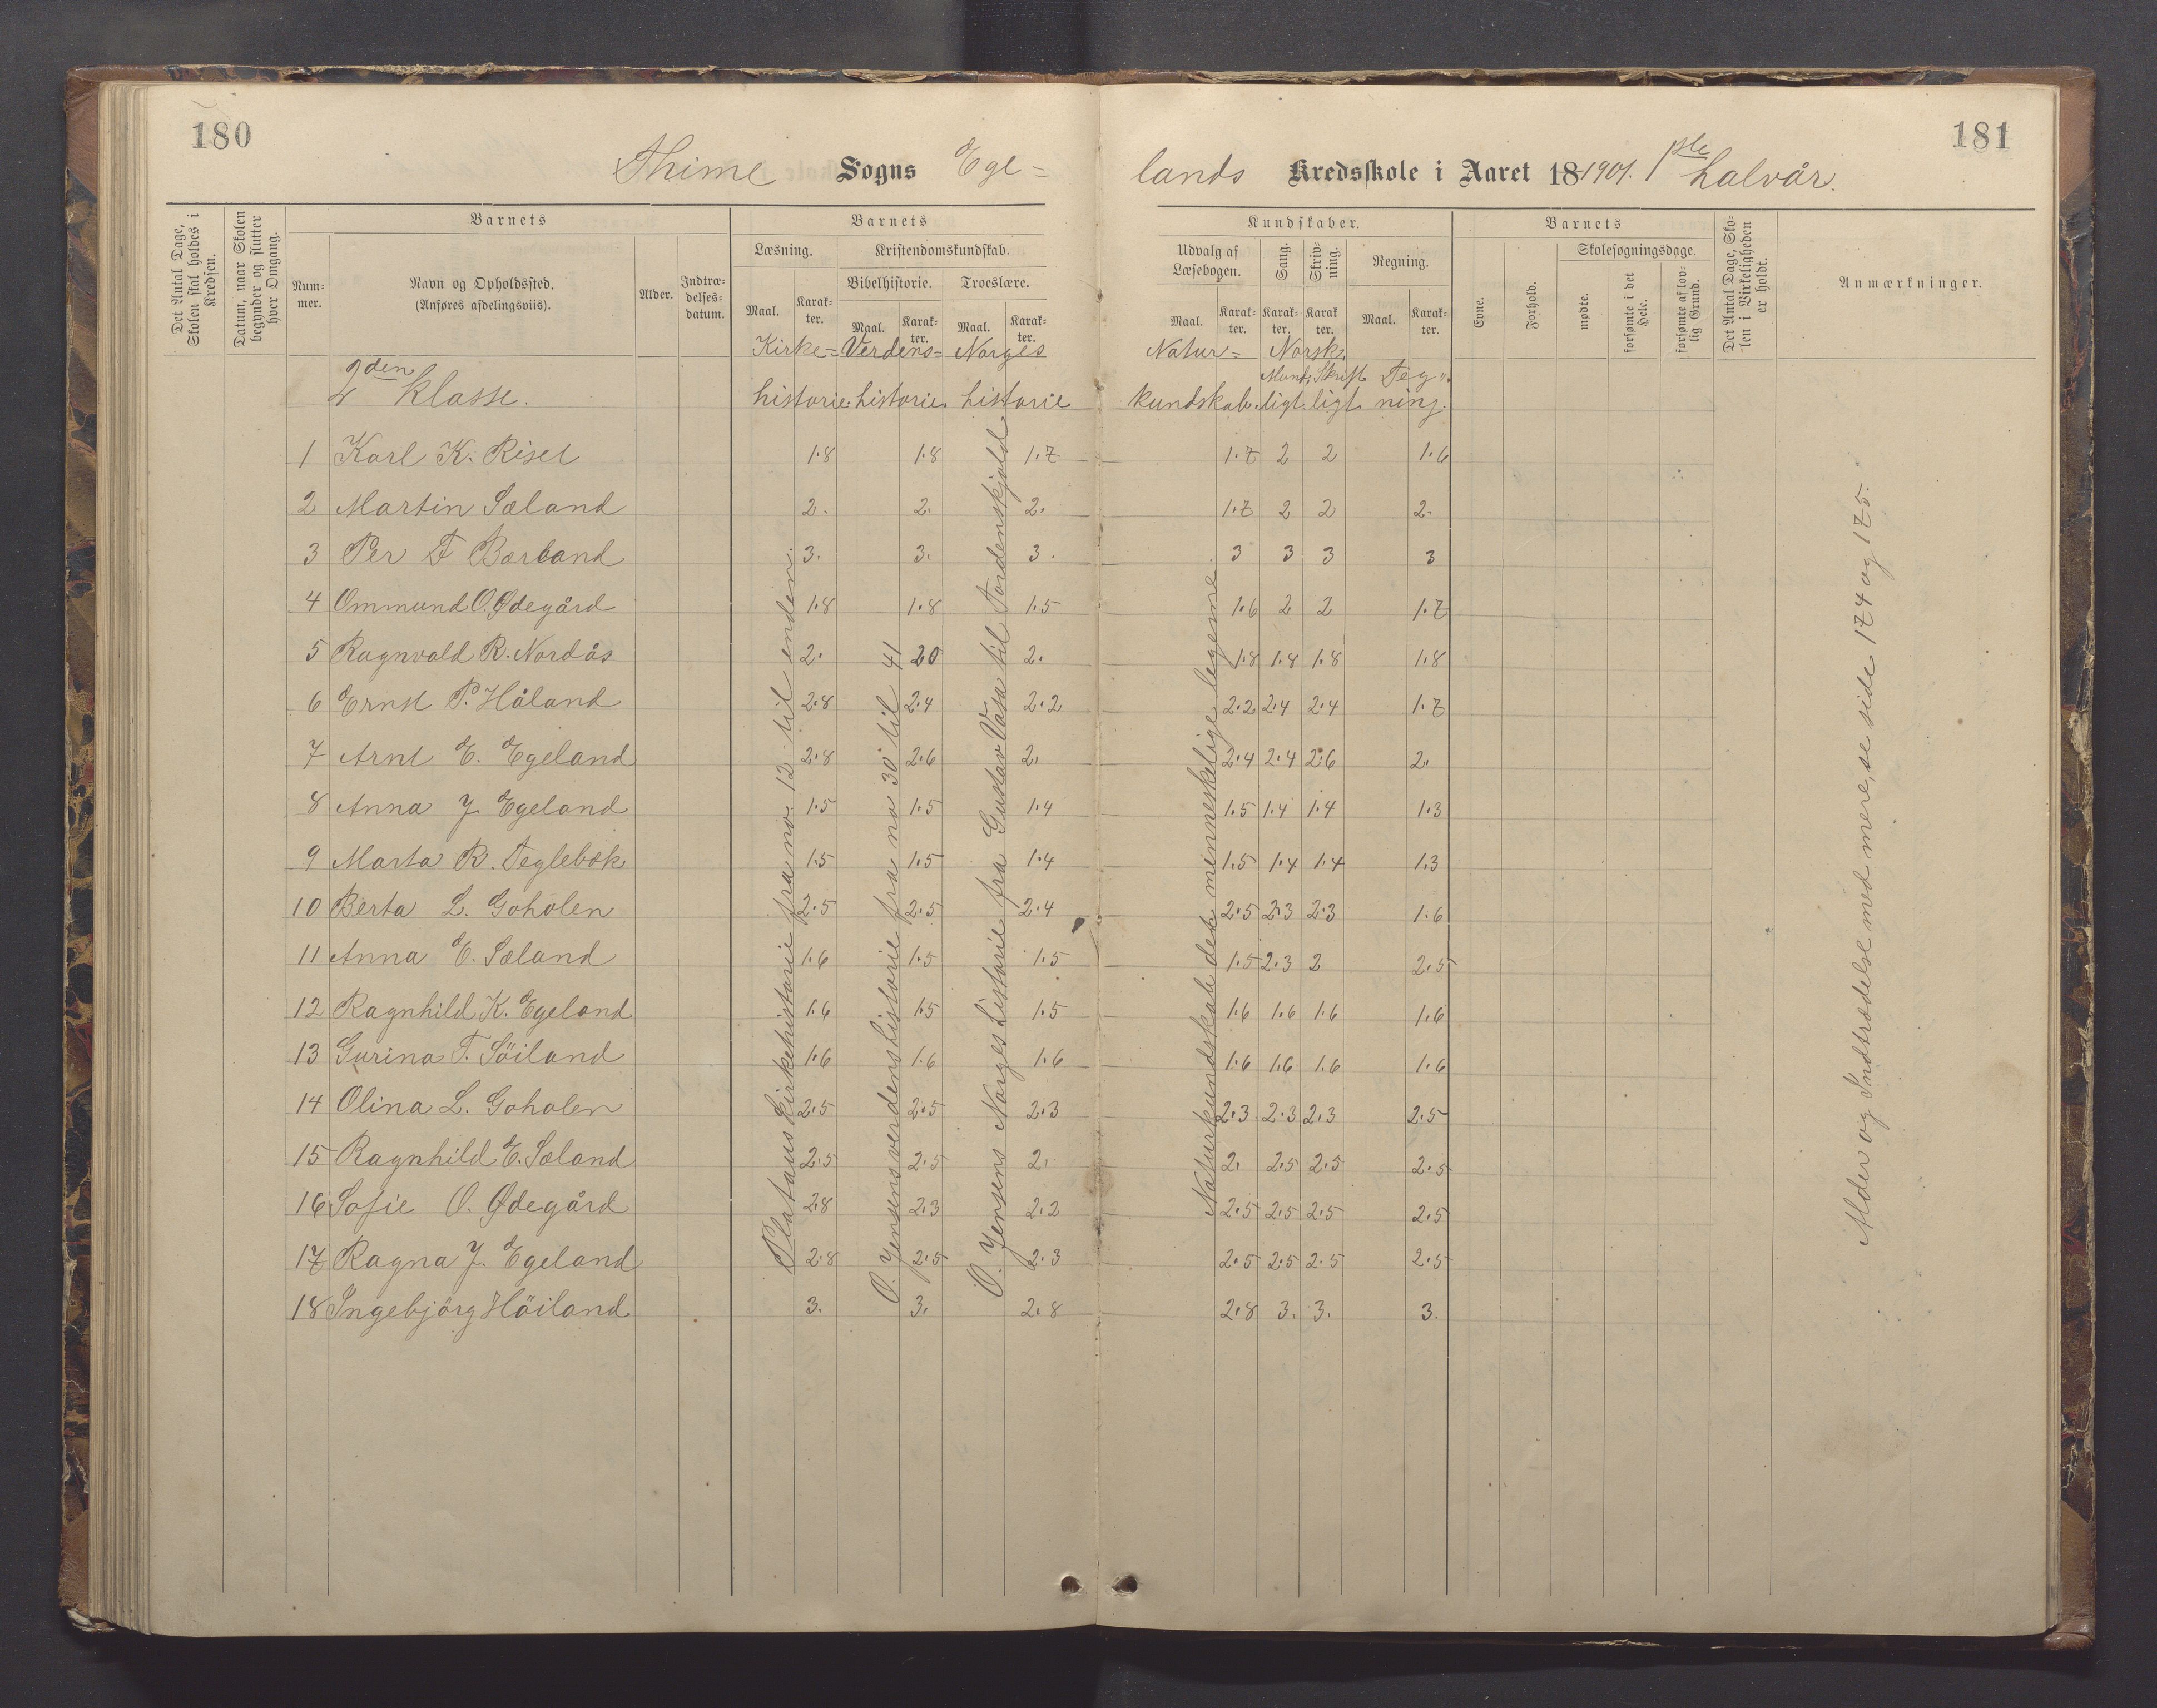 180
181
Thime Sogns Ege=
lands Kredsskole i Aaret 18 1901. 1ste halvår.
Det Antal Dage, Skolen skal holdes i Kredsen.
Datum, naar Skolen begynder og slutter hver Omgang.
Barnets
Num-mer.
Navn og Opholdssted.
(Anføres afdelingsviis).
Alder.
Indtræ-delses-datum.
Barnets
Læsning.
Kristendomskundskab.
Bibelhistorie.
Troeslære.
Maal. Karak-ter. Maal. Karak-ter. Maal. Karak-ter.
Kundskaber.
Udvalg af Læsebogen.
Sang.
Skriv-ning.
Regning.
Maal. Karak-ter. Karak-ter. Karak-ter. Maal. Karak-ter.
Barnets
Evne.
Forhold.
Skolesøgningsdage.
mødte.
forsømte i det Hele.
forsømte af lov-lig Grund.
Det Antal Dage, Sko-len i Virkeligheden er holdt.
Anmærkninger.
Kirke= Verdens= Norges Natur= Norsk.
2den klasse. historie. historie. historie kundskab. Mundtligt. Skriftligt Teg=ning.
1 Karl K. Riset 1.8 1.8 1.7 1.7 2 2 1.6
2 Martin Sæland 2. 2. 2. 1.7 2 2 2.
3 Per F Børland 3. 3. 3. 3 3 3 3
4 Ommund O. Ødegård 1.8 1.8 1.5 1.6 2 2 1.7
5 Ragnvald R. Nordås 2. 20 2. 1.8 1.8 1.8 1.8
6 Ernst P. Håland 2.8 2.4 2.2 2.2 2.4 2.4 1.7
7 Arnt E. Egeland 2.8 2.6 2. 2.4 2.4 2.6 2.
8 Anna J Egeland 1.5 1.5 1.4 1.5 1.4 1.4 1.3
9 Marta R. Teglebæk 1.5 1.5 1.4 1.5 1.4 1.4 1.3
10 Berta L. Goholen 2.5 2.5 2.4 2.5 2.3 2.3 1.6
11 Anna E. Sæland 1.6 1.5 1.5 1.5 2.3 2 2.5
12 Ragnhild K. Egeland 1.6 1.5 1.5 1.6 1.6 1.6 1.6
13 Gurina T. Söiland 1.6 1.6 1.6 1.6 1.6 1.6 1.6
14 Olina L. Goholen 2.5 2.5 2.3 2.3 2.3 2.3 2.5
15 Ragnhild E. Sæland 2.5 2.5 2. 2. 2.5 2.5 2.5
16 Sofie O. Ødegård 2.8 2.3 2.2 2.5 2.5 2.5 2.5
17 Ragna J. Egeland 2.8 2.5 2.3 2.5 2.5 2.5 2.5
18 Ingebjörg Höiland 3. 3. 2.8 2.8 3. 3. 3.
Platous kirkehistorie fra no. 12 til enden.
O. Jensens verdenshistorie fra no 30 til 41
O. Jensens Norges historie fra Gustav Vasa til Tordenskjold
Naturkundskab det menneskelige legeme.
Alder og Indtrædelse med mere, se side 174 og 175.